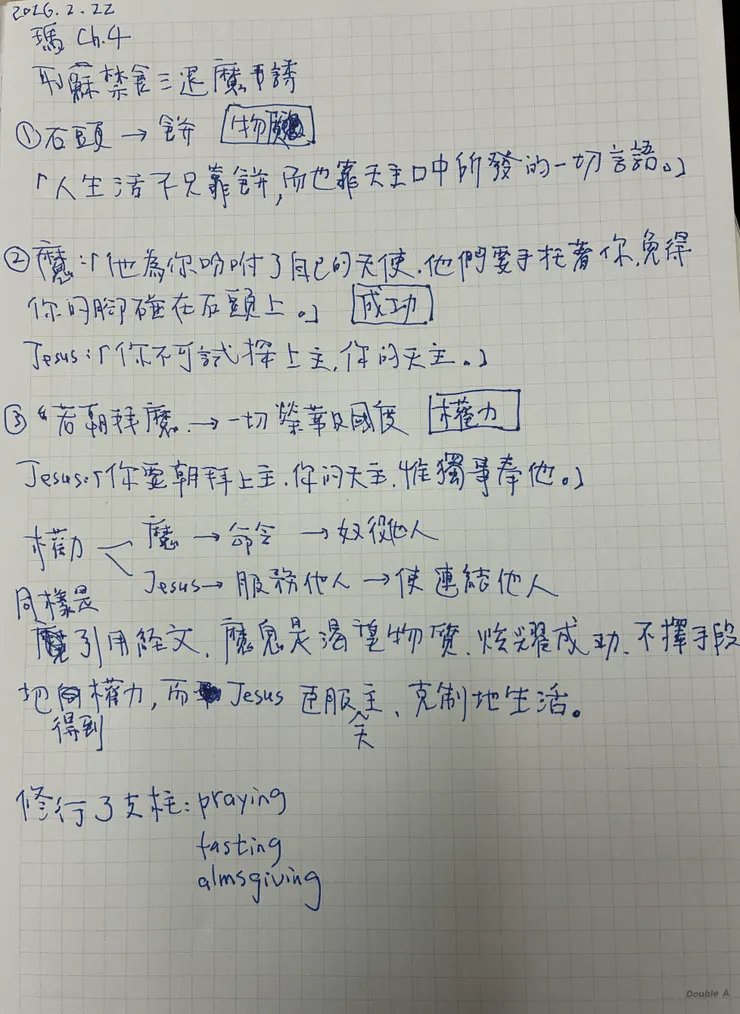 2026.2.22
瑪 Ch.4
耶穌禁食三退魔誘
①石頭 → 餅 物質
「人生活不只靠餅,而也靠天主口中所發的一切言語。」
②魔:「他為你吩咐了自己的天使,他們要手托著你,免得
你的腳碰在石頭上。」 成功
Jesus:「你不可試探上主,你的天主。」
③ 若朝拜魔 → 一切榮華及國度 權力
Jesus:「你要朝拜上主,你的天主,惟獨事奉他。」
魔 → 命令 → 奴役他人
權力
Jesus → 服務他人 → 使連結他人
同樣是
引用經文,魔鬼是渴望物質、炫耀成功、不擇手段
地得到權力,而 Jesus 臣服天主、克制地生活。
修行3支柱: praying
fasting
almsgiving
Double A